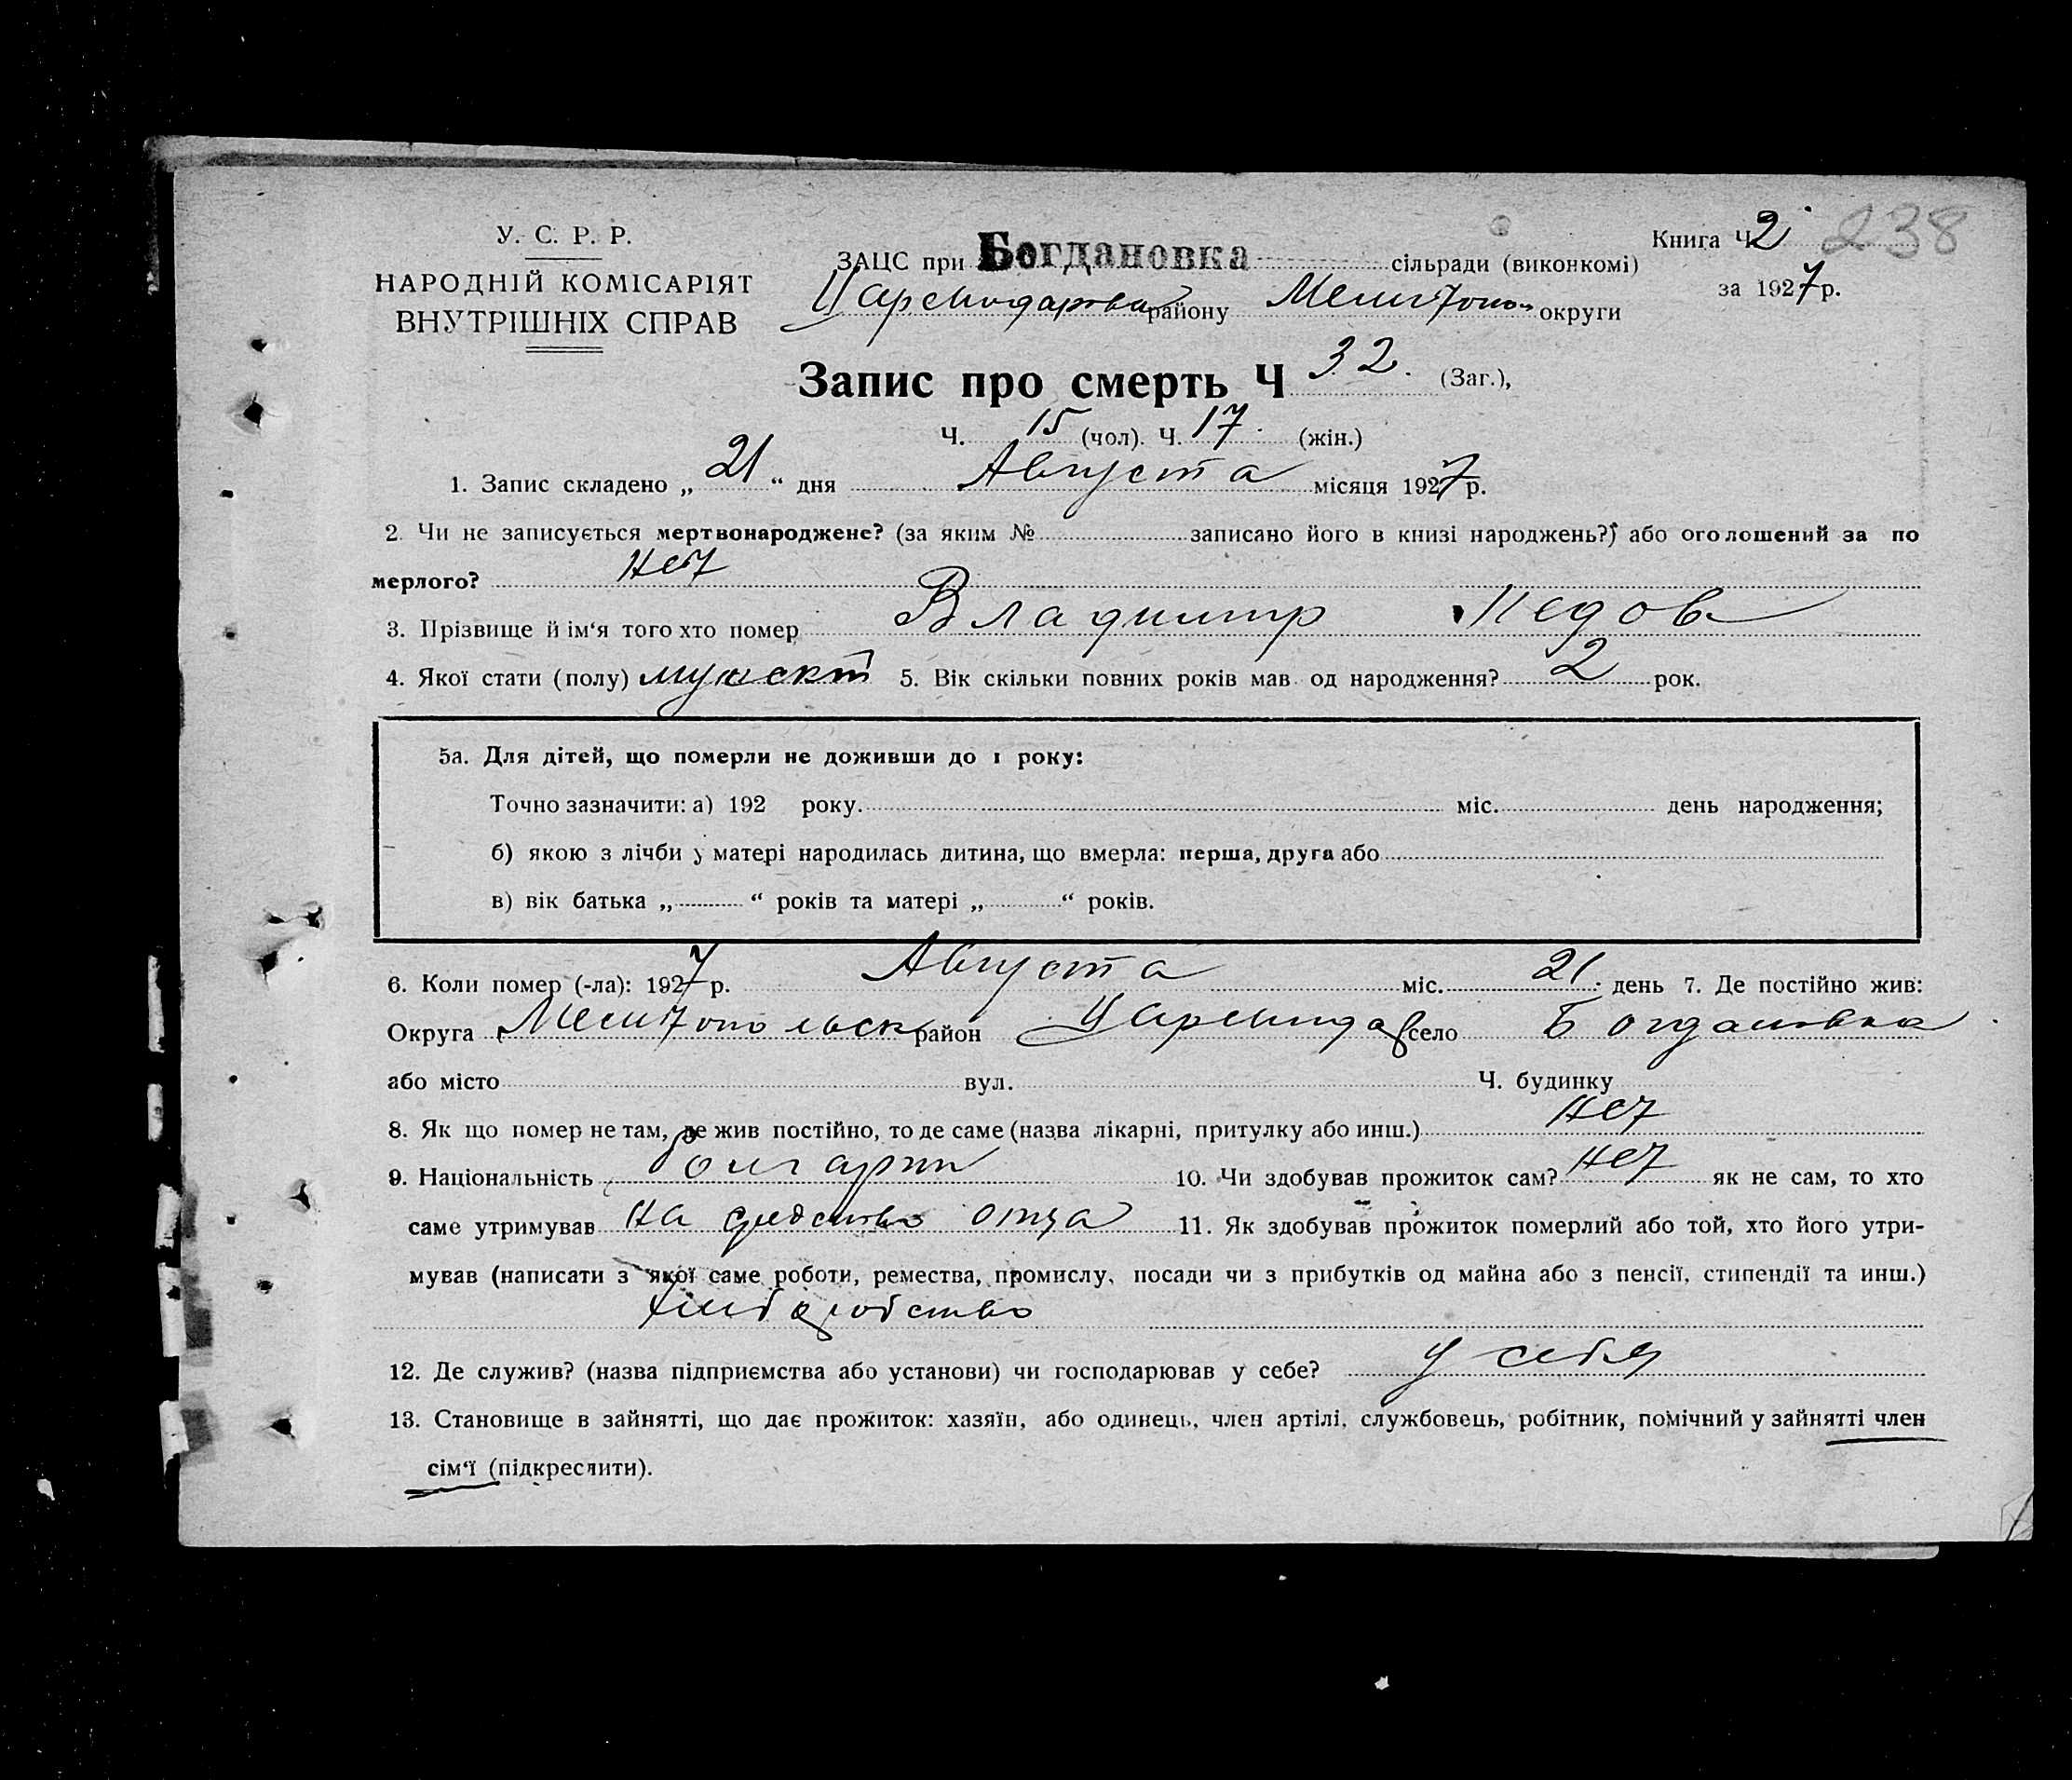 У. С. Р. Р.
НАРОДНІЙ КОМІСАРІЯТ
ВНУТРІШНІХ СПРАВ
Книга Ч 2 238
за 1927 р.
ЗАЦС при Богдановка сільради (виконкомі)
району Мелитопол округи
Запис про смерть Ч 32. (Заг.),
Ч. 15 (чол). Ч. 17. (жін.)
1. Запис складено „ 21 “ дня Августа місяця 1927 р.
2. Чи не записується мертвонароджене? (за яким № записано його в книзі народжень?) або оголошений за по
мерлого? нет
3. Прізвище й ім‘я того хто помер Владимир Недов
4. Якої стати (полу) мужск 5. Вік скільки повних років мав од народження? 2 рок.
5а. Для дітей, що померли не доживши до 1 року:
Точно зазначити: а) 192 року. міс. день народження;
б) якою з лічби у матері народилась дитина, що вмерла: перша, друга або
в) вік батька „ “ років та матері „ “ років.
6. Коли помер (-ла): 1927 р. Августа міс. 21 день 7. Де постійно жив:
Округа Мелитопольск район село Богдановка
або місто вул. Ч. будинку
8. Як що помер не там, де жив постійно, то де саме (назва лікарні, притулку або инш.) нет
9. Національність болгарин 10. Чи здобував прожиток сам? нет як не сам, то хто
саме утримував на средство отца 11. Як здобував прожиток померлий або той, хто його утри-
мував (написати з якої саме роботи, ремества, промислу, посади чи з прибутків од майна або з пенсії, стипендії та инш.)
хлебородство
12. Де служив? (назва підприємства або установи) чи господарював у себе? у себя
13. Становище в зайнятті, що дає прожиток: хазяїн, або одинець, член артілі, службовець, робітник, помічний у зайнятті член
сім‘ї (підкреслити).